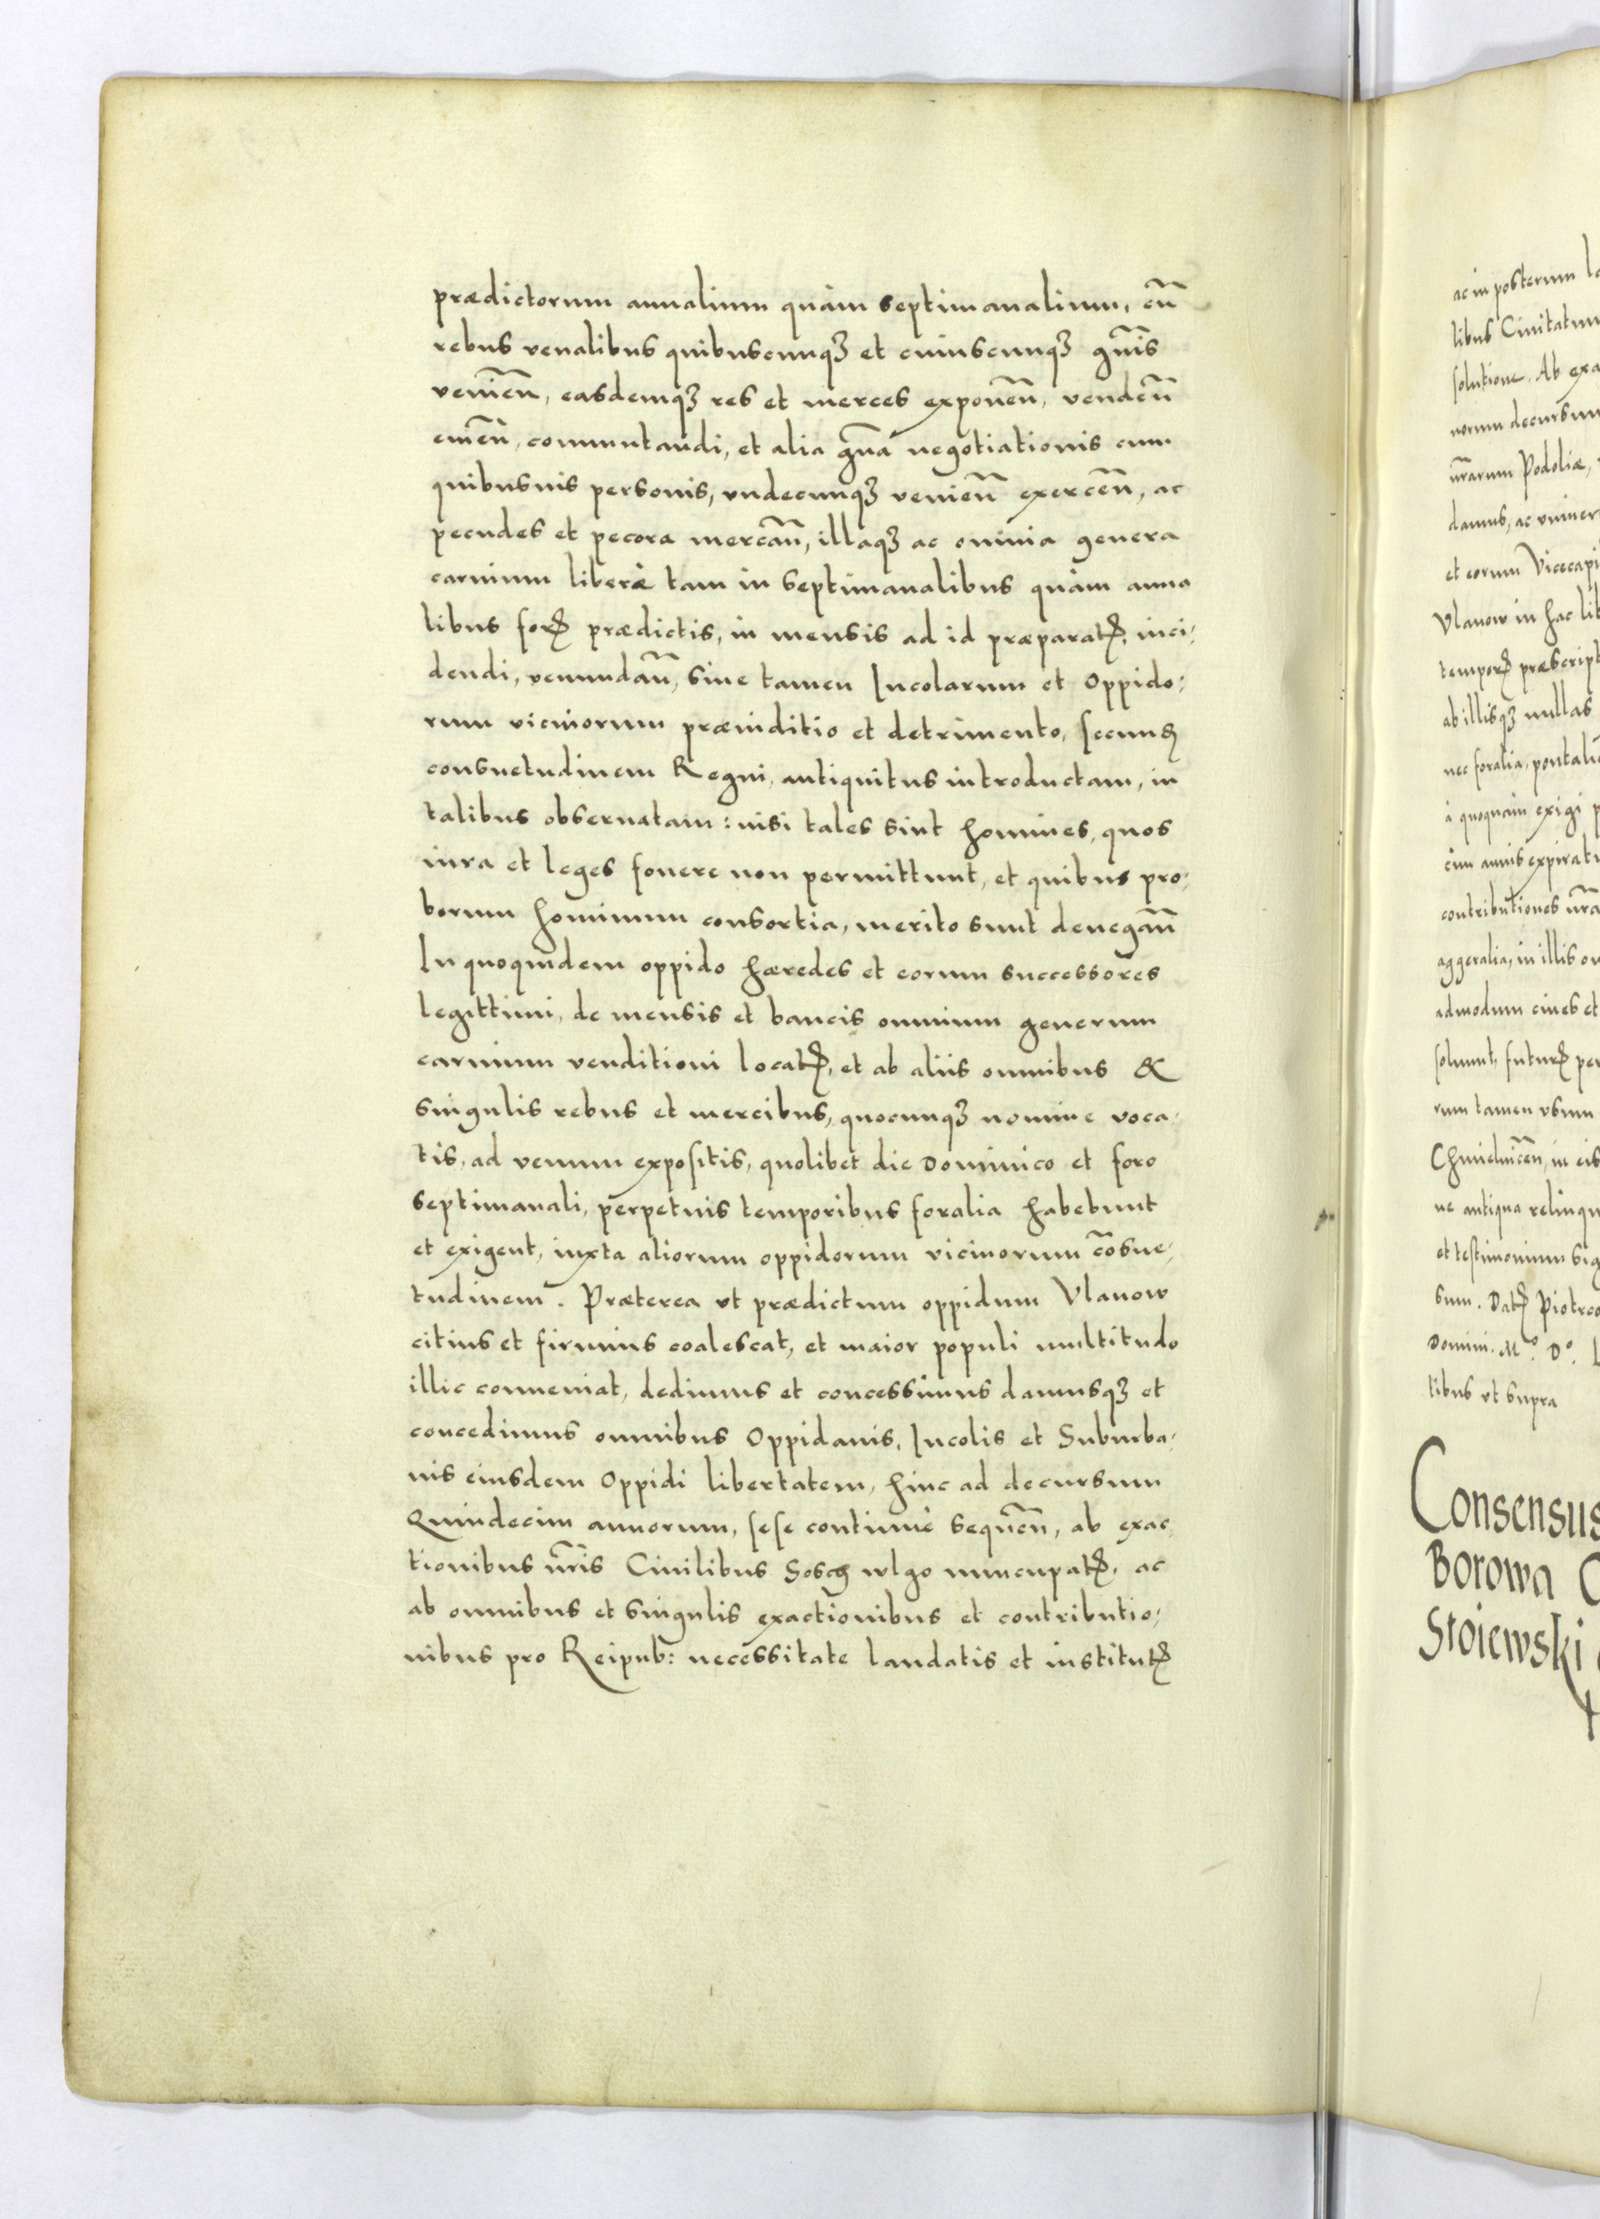 prædictorum annalium quàm septimanalium, cũ
rebus venalibus quibuscunqꝫ et cuiuscunqꝫ gñis
venieñ, easdemqꝫ res et merces exponeñ, vendeñ
emeñ, commutandi, et alia gña negotiationis cum
quibusuis personis, vndecunqꝫ venieñ exerceñ, ac
pecudes et pecora mercañ, illaqꝫ ac omnia genera
carnium liberè tam in septimanalibus quàm anna
libus forꝭ prædictis, in mensis ad id præparatꝭ, inci,
dendi, venundañ, sine tamen Incolarum et Oppido,
rum vicinorum præiuditio et detrimento, secunꝺ
consuetudinem Regni, antiquitus introductam, in
talibus obseruatam: nisi tales sint homines, quos
iura et leges fouere non permittunt, et quibus pro,
borum hominum consortia, merito sunt denegañ
In quoquidem oppido hæredes et eorum successores
legittimi, de mensis et bancis omnium generum
carnium venditioni locatꝭ, et ab aliis omnibus &
singulis rebus et mercibus, quocunqꝫ nomine voca,
tis, ad venum expositis, quolibet die Dominico et foro
septimanali, perpetuis temporibus foralia habebunt
et exigent, iuxta aliorum oppidorum vicinorum cõsue,
tudinem. Præterea vt prædictum oppidum Vlanow
citius et firmius coalescat, et maior populi multitudo
illic conueniat, dedimus et concessimus damusqꝫ et
concedimus omnibus Oppidanis, Incolis et Suburba,
nis eiusdem Oppidi libertatem, hinc ad decursum
Quindecim annorum, sese continuè sequeñ, ab exac,
tionibus nr̃is Ciuilibus Sosch wlgo nuncupatꝭ, ac
ab omnibus et singulis exactionibus et contributio,
nibus pro Reipub: necessitate laudatis et institutꝭ
ac in posterum
libus Ciuitatum
solutione. Ab exa
norum decursum
nr̃arum Podoliæ,
damus, ac vniuer
et eorum Vicecapi
Vlanow in hac lib
temporꝭ præscript
ab illisqꝫ nullas
nec foralia, pontaliã
à quoquàm exigi
cim annis expirati
contributiones nr̃a
aggeralia, in illis
admodum ciues et
soluunt, futurꝭ per
rum tamen vsum
in eis
ue antiqua relinqu
et testimonium sig
sum. Datꝭ Piotrco
Domini. Mº. Dº.
tibus vt supra
Consensus
Borowa
Stoiewski